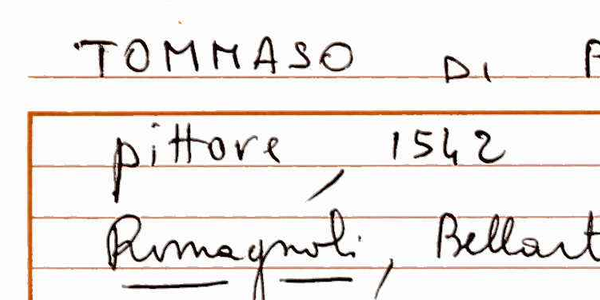 TOMMASO DI
pittore 1542
Romagnoli, Bellart